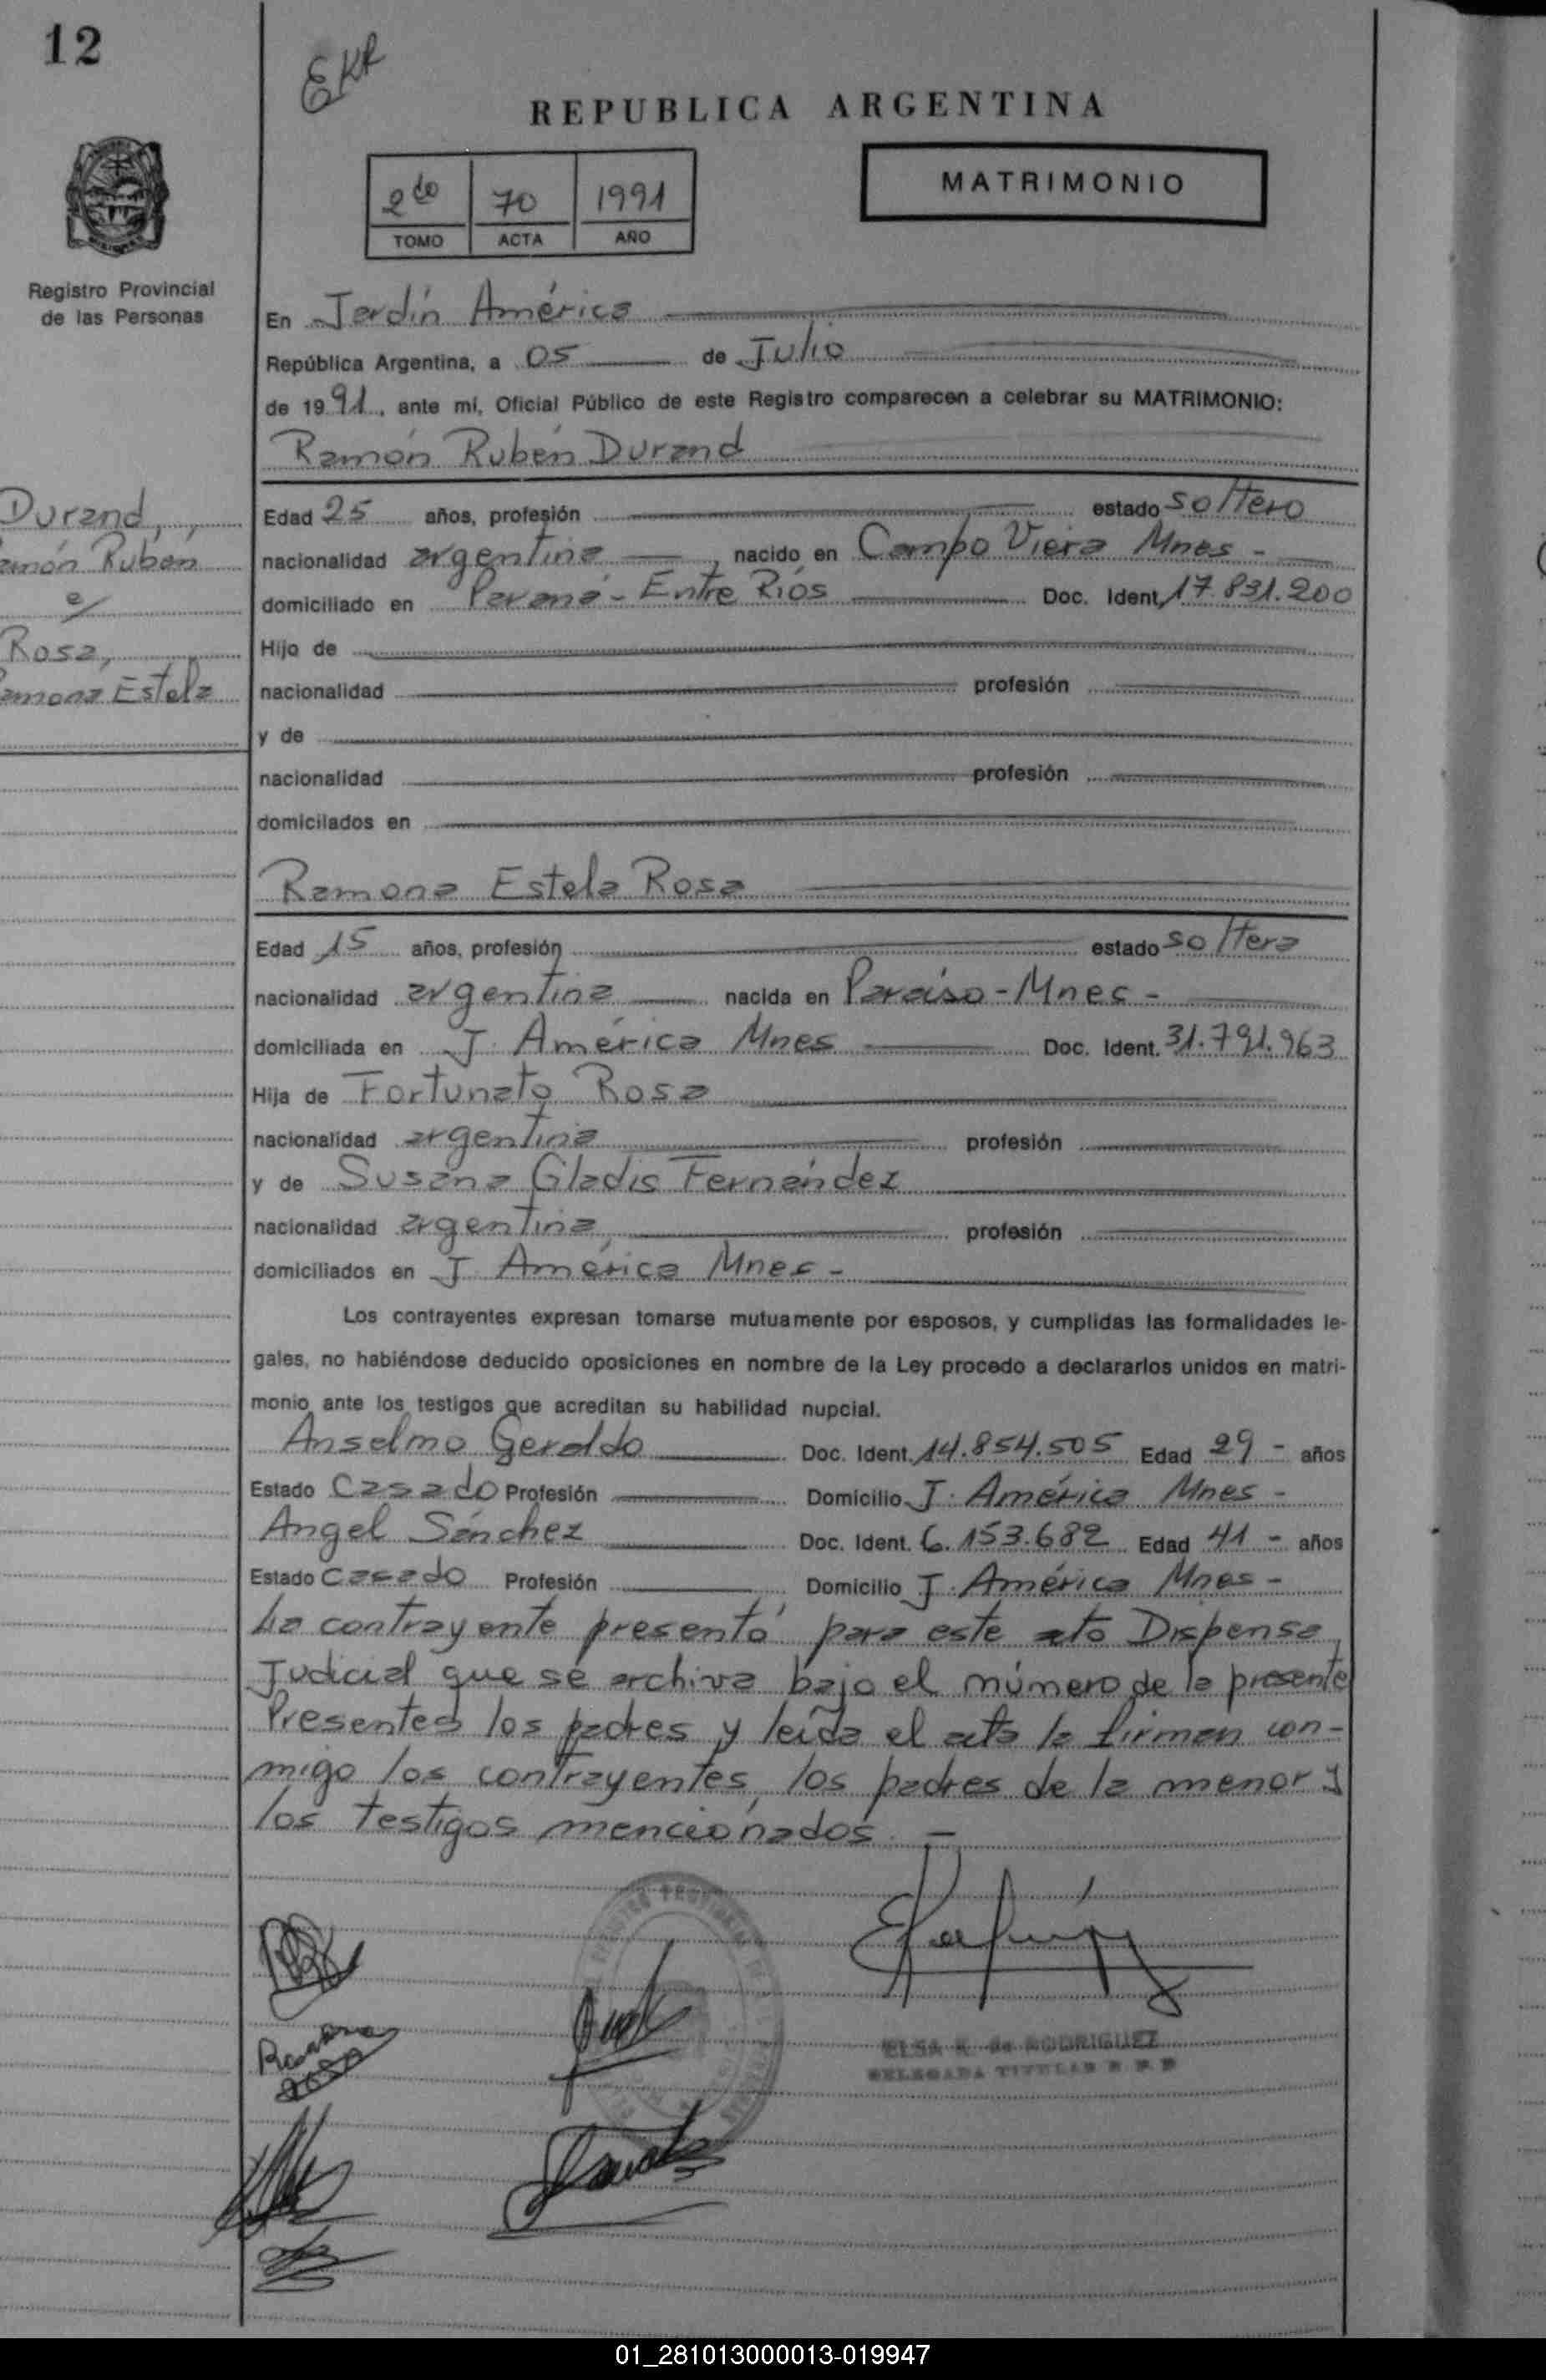 12
EKR
REPUBLICA ARGENTINA
2do 70 1991
TOMO ACTA AÑO
MATRIMONIO
MISIONES
Registro Provincial
de las Personas
En Jardín América
República Argentina, a 05 de Julio
de 1991, ante mí, Oficial Público de este Registro comparecen a celebrar su MATRIMONIO:
Ramón Rubén Durand
Durand,
amón Ruben
e/
Rosa,
amona Estela
Edad 25 años, profesión estado soltero
nacionalidad argentina, nacido en Campo Viera Mnes -
domiciliado en Paraná - Entre Ríos Doc. Ident. 17.831.200
Hijo de
nacionalidad profesión
y de
nacionalidad profesión
domicilados en
Ramona Estela Rosa
Edad 15 años, profesión estado soltera
nacionalidad argentina nacida en Paraíso - Mnes -
domiciliada en J. América Mnes Doc. Ident. 31.791.963
Hija de Fortunato Rosa
nacionalidad argentina profesión
y de Susana Gladis Fernández
nacionalidad argentina profesión
domiciliados en J. América Mnes -
Los contrayentes expresan tomarse mutuamente por esposos, y cumplidas las formalidades le-
gales, no habiéndose deducido oposiciones en nombre de la Ley procedo a declararlos unidos en matri-
monio ante los testigos que acreditan su habilidad nupcial.
Anselmo Geraldo Doc. Ident. 14.854.505 Edad 29 - años
Estado Casado Profesión Domicilio J. América Mnes -
Angel Sánchez Doc. Ident. 6.153.682 Edad 41 - años
Estado Casado Profesión Domicilio J. América Mnes -
La contrayente presentó para este acto Dispensa
Judicial que se archiva bajo el número de la presente
Presentes los padres y leída el acta la firman con-
migo los contrayentes, los padres de la menor y
los testigos mencionados. -
Ramona
Rosa
ELSA K. de RODRIGUEZ
DELEGADA TITULAR R P P
01_281013000013-019947